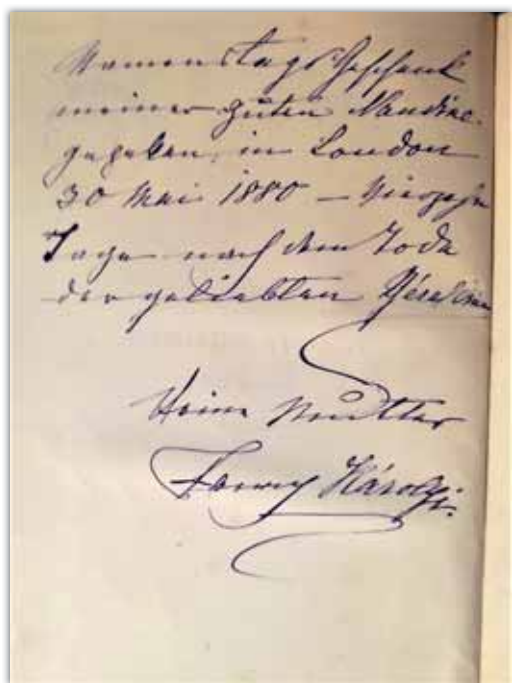 Namenstags Geschenk
meiner guten Nandine
gegeben in London
30 Mai 1880 – vierzehn
Tage nach dem Tode
der geliebten
Deine Mutter
Fanny Károlyi.